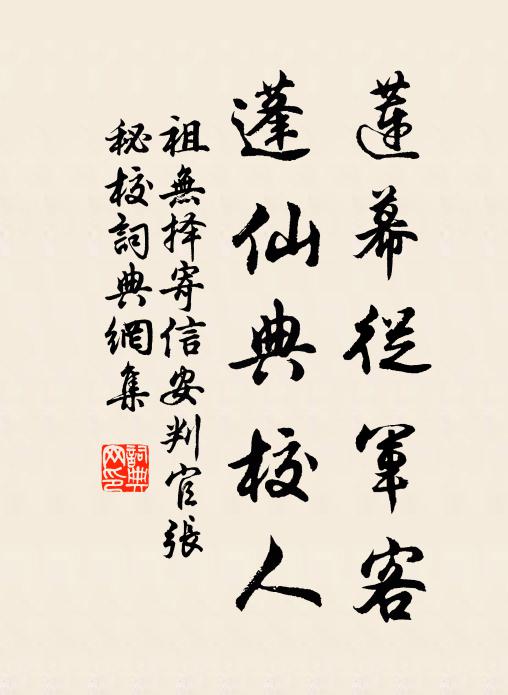 蓮幕從軍客
蓬仙典校人
祖無择寄信安判官張
秘校詞典網集
詞典网印